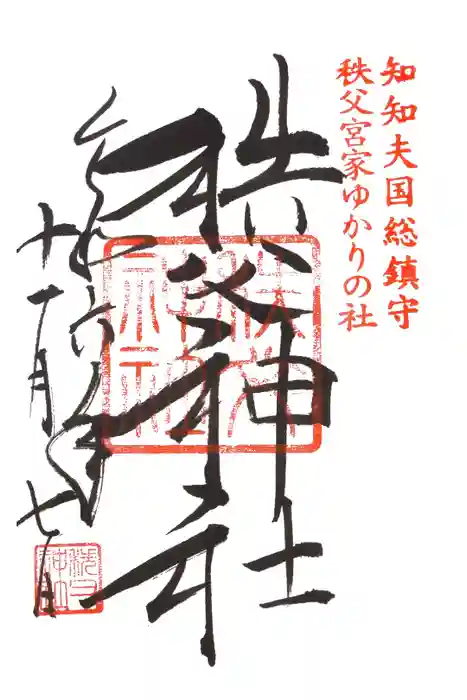 知知夫国総鎮守
秩父宮家ゆかりの社
秩父神社
令和六年
十一月七日
秩父神社